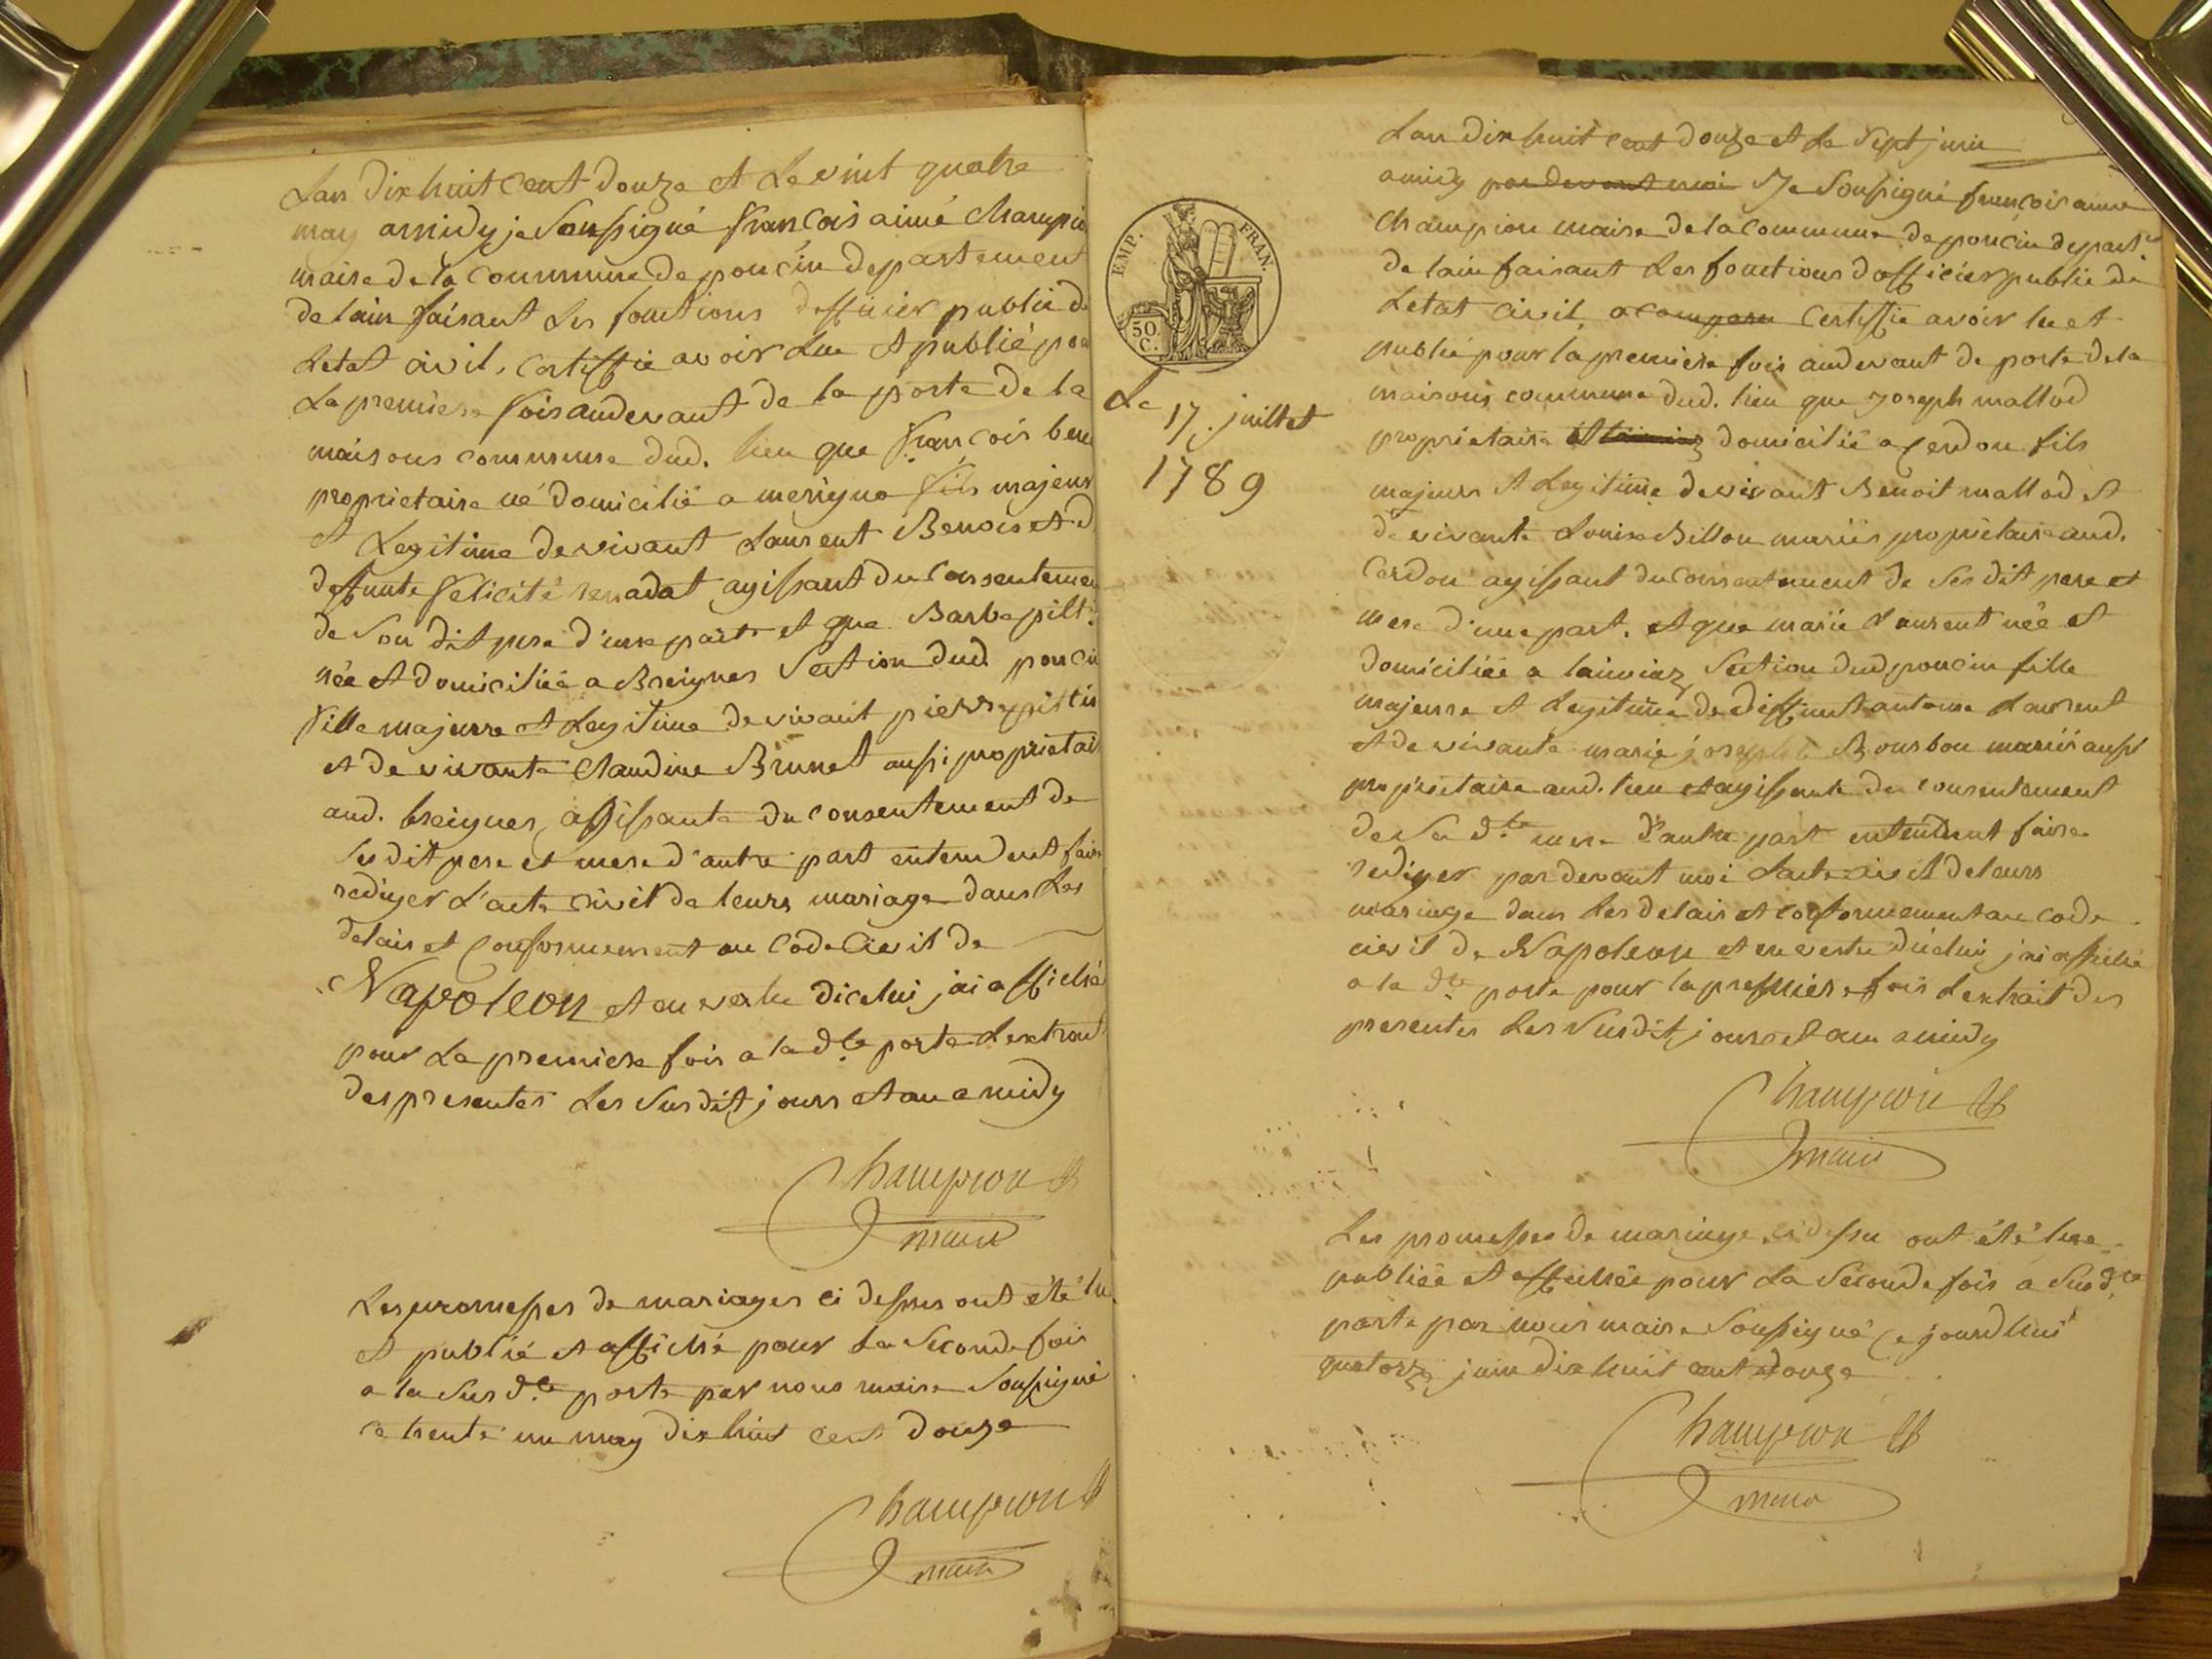 Lan dix huit cent douze et le vint quatre
may a midy je Soussigné francois aimé Champio
maire de la Commune de poncin departement
de lain faisant les fonctions dofficier public de
letat civil, certiffie avoir lue et publié pou
la premiere fois au devant de la porte de la
maisons commune dud. lieu que francois bene
proprietaire né domicilié a merigna fils majeur
et Legitime de vivant Laurent Benois et d
deffunte felicité agissant du Consenteme
de Son dit pere d'une part et que Barbe pilt
née et domiciliée a Breignes Section dud poncin
fille majeure et Legitime de vivant pierre pistis
et de vivante Claudine Brunet aussi proprietair
aud. breignes, agissante du consentement de
Ses dit pere et mere d'autre part entendent faire
rediger l'acte civil de leurs mariage dans les
delais et conformement au Code Civil de
Napoleon et en vertu dicelui j'ai affiché
pour la premiere fois a la dte porte Lextrait
des presentes les Susdit jours et an a midy
Champion
maire
Les promesses de mariages ci dessus ont été lu
et publié et affiché pour la Seconde fois
a la Sus dte porte par nous maire Soussigné
ce trente un may dix huit cent douze
Champion
maire
EMP. FRAN.
50.
C.
Le
17. juillet
1789
Lan dix huit cent douze et le Sept juin
a midy par devant moi Je Soussigné francois aime
Champion maire de la Commune de poncin depart
de lain faisant les fonctions dofficier public de
Letat civil, a comparu Certiffie avoir lu et
publié pour la premiere fois au devant de porte de la
maisons commune dud. lieu que Joseph mallod
proprietaire domicilié a Cerdon fils
majeur et Legitime de vivant Benoit mallod et
de vivante Louise Billon mariés proprietaire aud.
Cerdon agissant du consentement de Ses dit pere et
mere d'une part. et que marie Laurent née et
domiciliée a Section dud poncin fille
majeure et Legitime de deffunt antoine Laurent
et de vivante marie josephte Bourbon mariés aussi
proprietaire aud. lieu et agissante du consentement
de Sa dte mere d'autre part entendent faire
rediger par devant moi Lacte civil de leurs
mariage dans les delais et conformement au code
civil de Napoleon et en vertu dicelui j'ai affiché
a la dte porte pour la premiere fois Lextrait des
presentes Les Susdit jours et an a midy
Champion
maire
Les promesses de mariage ci dessu ont été lue
publiée et affichée pour la Seconde fois a Susdte
porte par nous maire Soussigné ce jourdhui
quatorze juin dix huit cent douze
Champion
maire